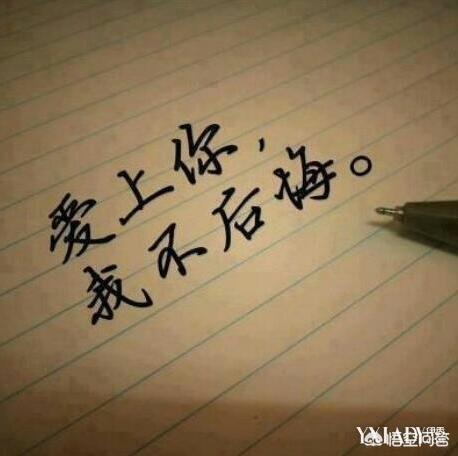 爱上你，
我不后悔。
悟空问答